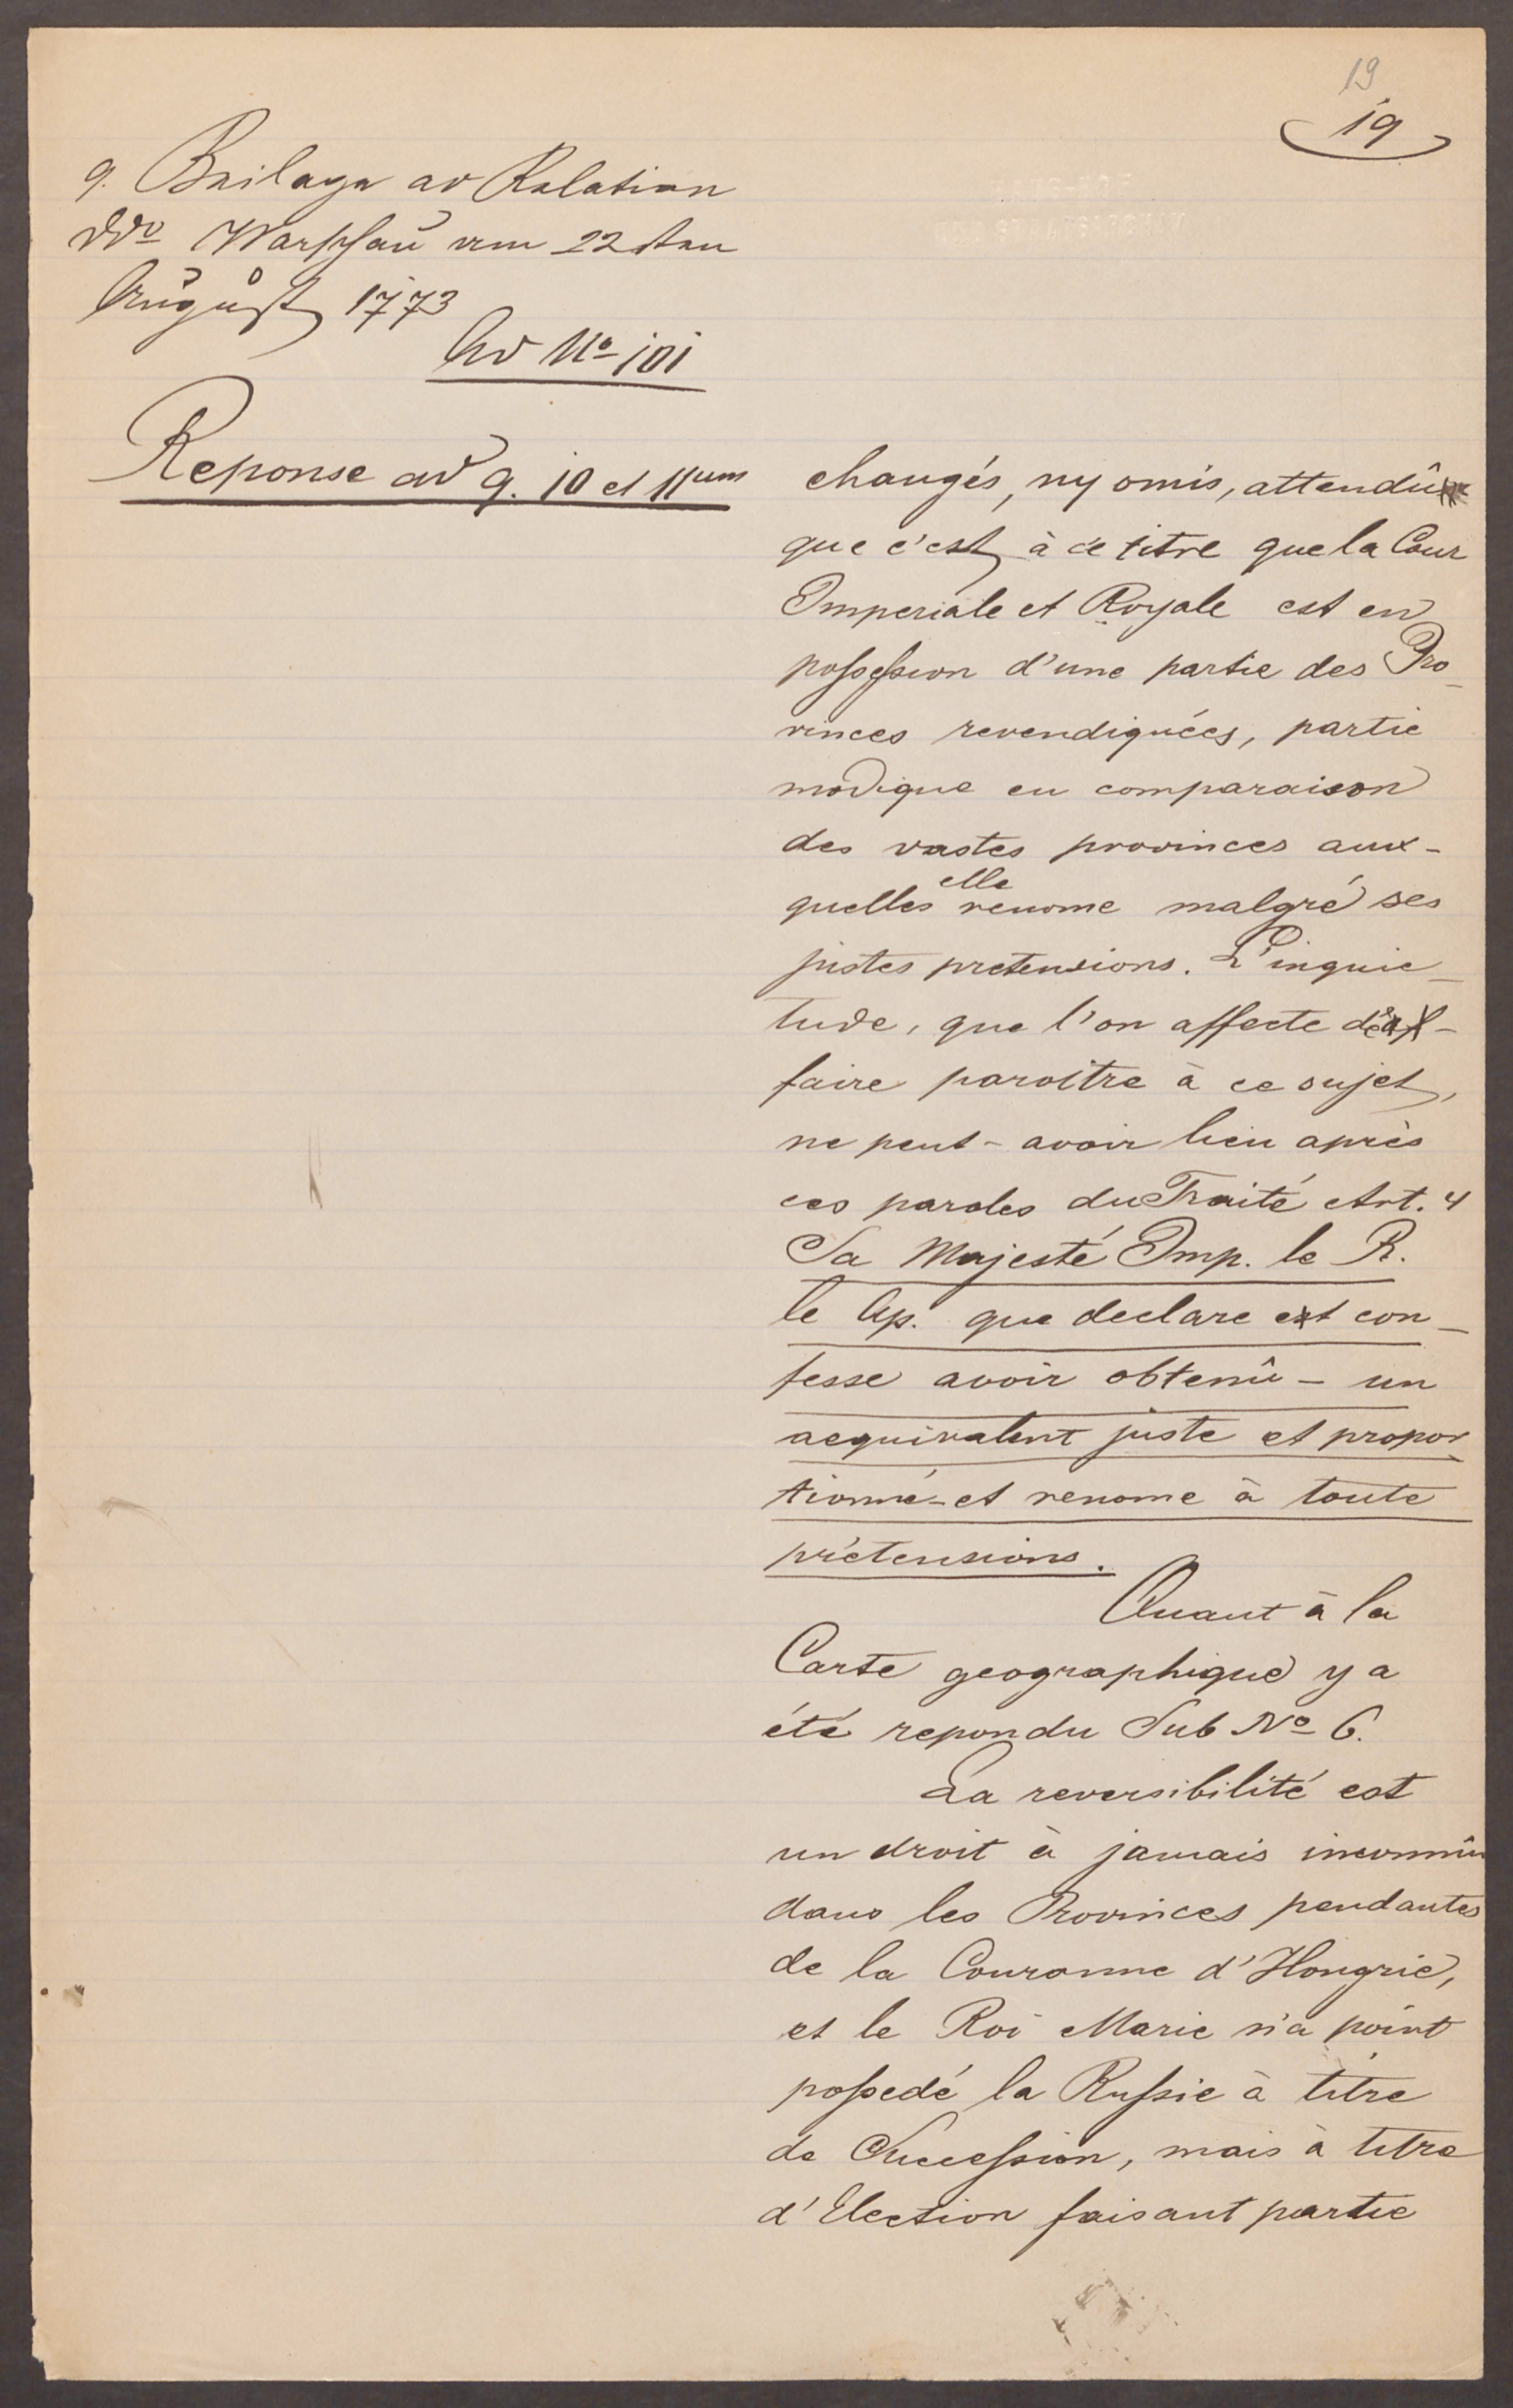 19
19
9. Beilage ad Relation
ddo Warschau vom 22sten
August 1773
Ad No 101
Reponse ad 9. 10 et 11um
changés, ny omis, attendû
que c'est à ce titre que la Cour
Imperiale et Royale est en
possession d'une partie des Pro-
vinces revendiquées, partie
modique en comparaison
des vastes provinces aux-
quelles elle renome malgré ses
justes pretensions. L'inquie-
tude, que l'on affecte de
faire paroître à ce sujet,
ne peut-avoir lieu après
ces paroles du Traité Art. 4
Sa Majesté Imp. le R.
le Ap. que declare et con-
fesse avoir obtenû - un
aequivalent juste et propor-
tionné - et renome à toute
prétensions.
Quant à la
Carte geographique y a
été repondu Sub No 6.
La reversibilité est
un droit à jamais inconnû
dans les Provinces pendantes
de la Couronne d'Hongrie,
et le Roi Marie n'a point
possedé la Russie à titre
de Succession, mais à titre
d'Election faisant partie